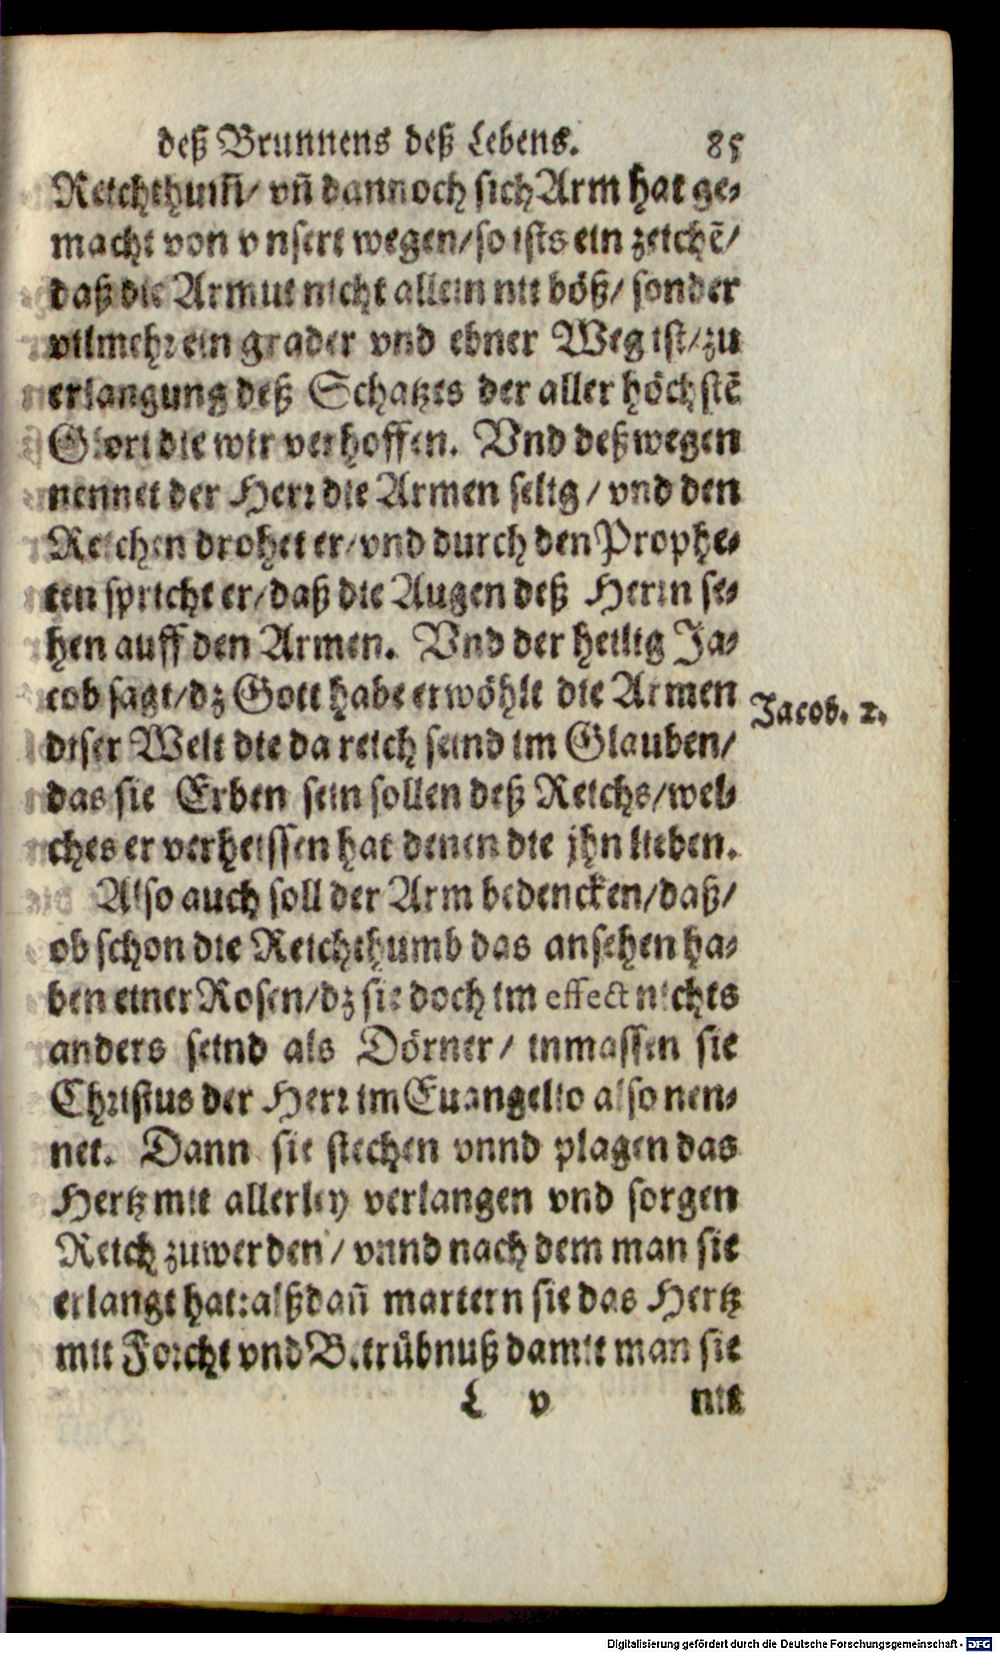 deß Brunnens deß Lebens. 85
Reichthum̃/ vñ dannoch sich Arm hat ge-
macht von vnsert wegen/so ists ein zeichẽ/
daß die Armut nicht allein nit böß/ sonder
vilmehr ein grader vnd ebner Weg ist/zu
erlangung deß Schatzes der aller höchstẽ
Glori die wir verhoffen. Vnd deßwegen
nennet der Herr die Armen selig/ vnd den
Reichen drohet er/vnd durch den Prophe-
ten spricht er/daß die Augen deß Herrn se-
hen auff den Armen. Vnd der heilig Ja-
cob sagt/dz Gott habe erwöhlt die Armen
Jacob. 2.
diser Welt die da reich seind im Glauben/
das sie Erben sein sollen deß Reichs/wel-
ches er verheissen hat denen die jhn lieben.
Also auch soll der Arm bedencken/daß/
ob schon die Reichthumb das ansehen ha-
ben einer Rosen/dz sie doch im effect nichts
anders seind als Dörner/ inmassen sie
Christus der Herr im Euangelio also nen-
net. Dann sie stechen vnnd plagen das
Hertz mit allerley verlangen vnd sorgen
Reich zuwerden/ vnnd nach dem man sie
erlangt hat: alßdañ martern sie das Hertz
mit Forcht vnd Betrübnuß damit man sie
L v nit
Digitalisierung gefördert durch die Deutsche Forschungsgemeinschaft - DFG